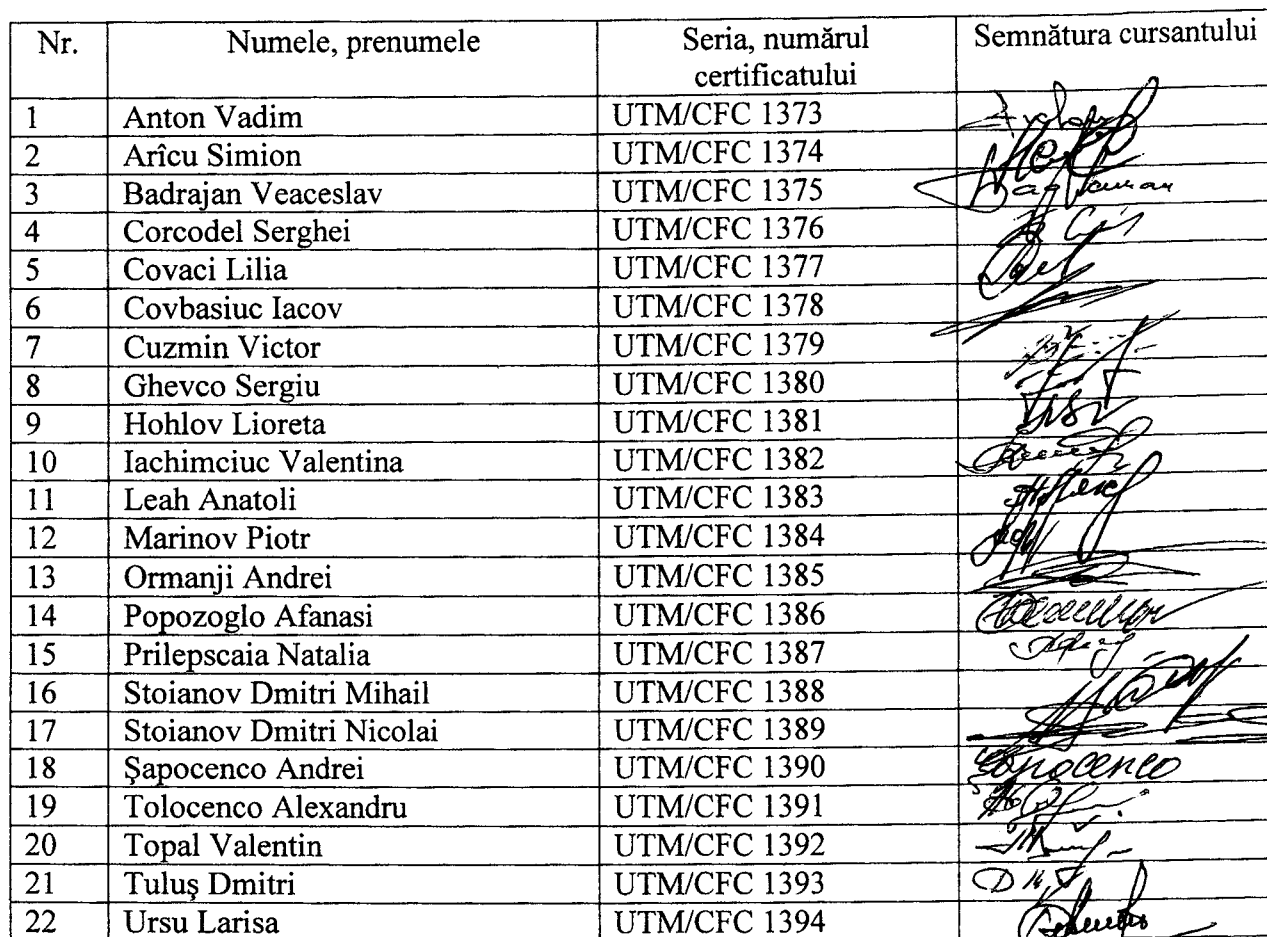 Nr. Numele, prenumele Seria, numărul certificatului Semnătura cursantului
1 Anton Vadim UTM/CFC 1373
2 Arîcu Simion UTM/CFC 1374
3 Badrajan Veaceslav UTM/CFC 1375
4 Corcodel Serghei UTM/CFC 1376
5 Covaci Lilia UTM/CFC 1377
6 Covbasiuc Iacov UTM/CFC 1378
7 Cuzmin Victor UTM/CFC 1379
8 Ghevco Sergiu UTM/CFC 1380
9 Hohlov Lioreta UTM/CFC 1381
10 Iachimciuc Valentina UTM/CFC 1382
11 Leah Anatoli UTM/CFC 1383
12 Marinov Piotr UTM/CFC 1384
13 Ormanji Andrei UTM/CFC 1385
14 Popozoglo Afanasi UTM/CFC 1386
15 Prilepscaia Natalia UTM/CFC 1387
16 Stoianov Dmitri Mihail UTM/CFC 1388
17 Stoianov Dmitri Nicolai UTM/CFC 1389
18 Şapocenco Andrei UTM/CFC 1390
19 Tolocenco Alexandru UTM/CFC 1391
20 Topal Valentin UTM/CFC 1392
21 Tuluş Dmitri UTM/CFC 1393
22 Ursu Larisa UTM/CFC 1394